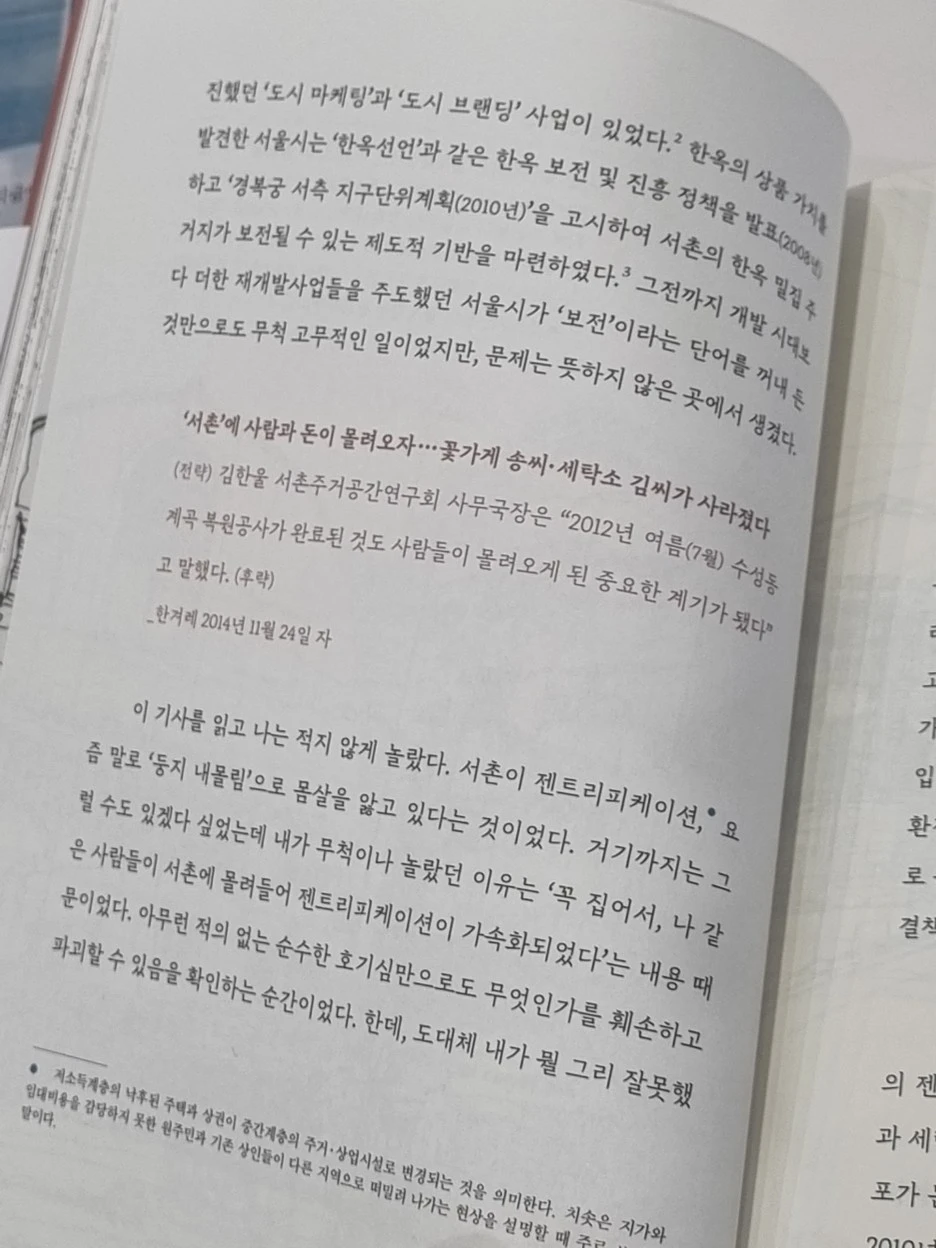 진했던 ‘도시 마케팅’과 ‘도시 브랜딩’ 사업이 있었다.² 한옥의 상품 가치를
발견한 서울시는 ‘한옥선언’과 같은 한옥 보전 및 진흥 정책을 발표(2008년)
하고 ‘경복궁 서측 지구단위계획(2010년)’을 고시하여 서촌의 한옥 밀집 주
거지가 보전될 수 있는 제도적 기반을 마련하였다.³ 그전까지 개발 시대보
다 더한 재개발사업들을 주도했던 서울시가 ‘보전’이라는 단어를 꺼내 든
것만으로도 무척 고무적인 일이었지만, 문제는 뜻하지 않은 곳에서 생겼다.
‘서촌’에 사람과 돈이 몰려오자…꽃가게 송씨·세탁소 김씨가 사라졌다
(전략) 김한울 서촌주거공간연구회 사무국장은 “2012년 여름(7월) 수성동
계곡 복원공사가 완료된 것도 사람들이 몰려오게 된 중요한 계기가 됐다”
고 말했다. (후략)
_한겨레 2014년 11월 24일 자
이 기사를 읽고 나는 적지 않게 놀랐다. 서촌이 젠트리피케이션,● 요
즘 말로 ‘둥지 내몰림’으로 몸살을 앓고 있다는 것이었다. 거기까지는 그
럴 수도 있겠다 싶었는데 내가 무척이나 놀랐던 이유는 ‘꼭 집어서, 나 같
은 사람들이 서촌에 몰려들어 젠트리피케이션이 가속화되었다’는 내용 때
문이었다. 아무런 적의 없는 순수한 호기심만으로도 무엇인가를 훼손하고
파괴할 수 있음을 확인하는 순간이었다. 한데, 도대체 내가 뭘 그리 잘못했
● 저소득계층의 낙후된 주택과 상권이 중간계층의 주거·상업시설로 변경되는 것을 의미한다. 치솟은 지가와
임대비용을 감당하지 못한 원주민과 기존 상인들이 다른 지역으로 떠밀려 나가는 현상을 설명할 때 주로
말이다.
가
입
로
결책
의 젠
과 세
포가
2010